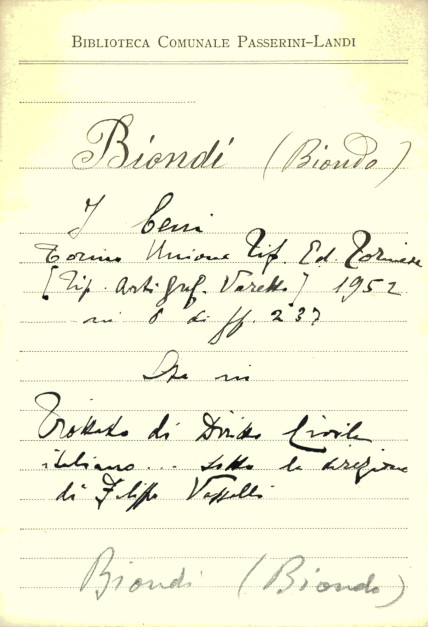 BIBLIOTECA COMUNALE PASSERINI-LANDI
Biondi (Biondo)
I Beni
Torino Unione Tip. Ed. Torinese
[Tip. Arti graf. ] 1952
in 8 di pp. 237
Sta in
Trattato di Diritto Civile
italiano... sotto la direzione
di Filippo Vassalli
Biondi (Biondo)